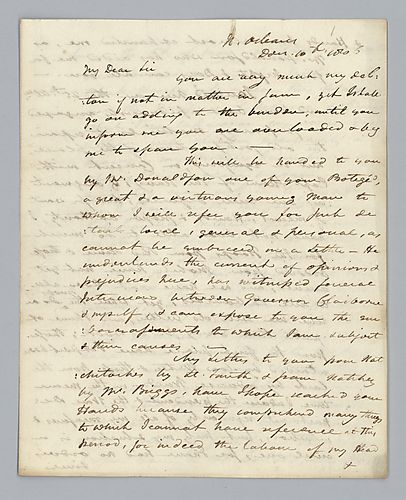 N. Orleans
Decr. 10th 1805
My Dear Sir
you are very much my deb-
tor if not in matter in form, yet I shall
go on adding to the burden, until you
inform me you are overloaded & beg
me to spare you —
This will be handed to you
by Mr. Donaldson one of your Protegés,
a great & a virtuous young Man to
whom I will refer you for such de
tails local, general & personal, as
cannot be embraced in a Letter — He
understands the current of opinions &
prejudices here, has witnessed several
Interviews between Governor Claiborne
& myself, & can expose to you the em
barrassments to which I am subject
& their causes. —
My Letters to you from Nat
chitoches by Lt. Smith & from Natchez
by Mr. Briggs, have I hope reached your
Hands because they comprehend many things
to which I cannot have reference at this
period, for indeed the labour of my Head